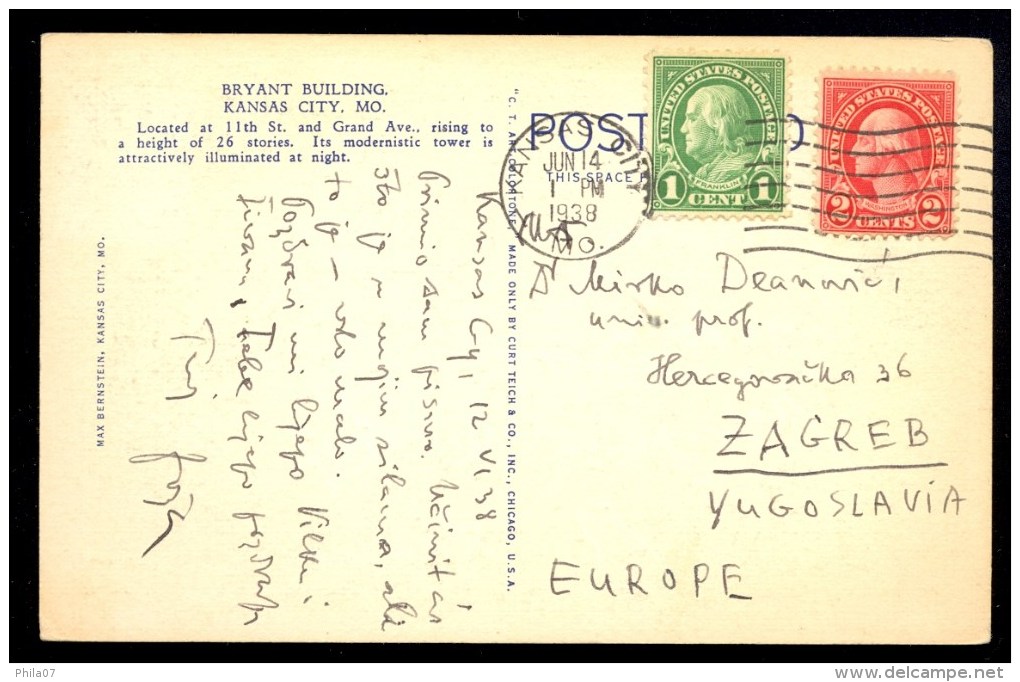 BRYANT BUILDING,
KANSAS CITY, MO.
Located at 11th St. and Grand Ave., rising to
a height of 26 stories. Its modernistic tower is
attractively illuminated at night.
MAX BERNSTEIN, KANSAS CITY, MO.
"C. T. ART-COLORTONE" MADE ONLY BY CURT TEICH & CO., INC., CHICAGO, U.S.A.
POST
THIS SPACE
KANSAS CITY
JUN 14
1 PM
1938
MO.
UNITED STATES POSTAGE
FRANKLIN
1 CENT 1
UNITED STATES POSTAGE
WASHINGTON
2 CENTS 2
Kansas Cy, 12 VI 38
Primio sam pismo. Učinit ću
što je u mojim silama, ali
to je — vrlo malo.
Pozdravi mi lijepo i
Tebe lijepo pozdravlja
Tvoj
Dr Mirko Deanović,
univ. prof.
Hercegovačka 36
ZAGREB
YUGOSLAVIA
EUROPE
Phila07
delcampe.net